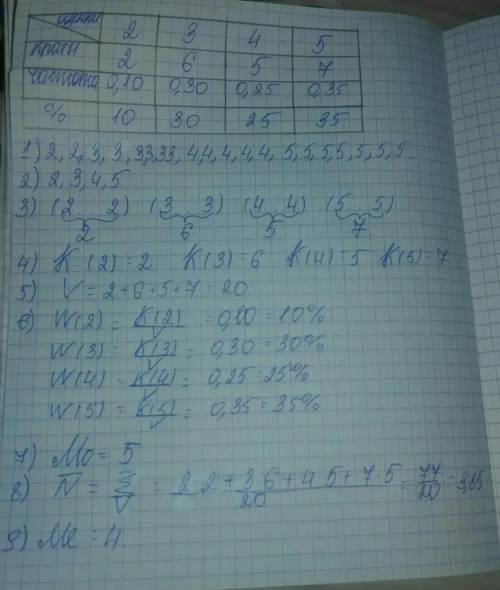 оценки 2 3 4 5
2 6 5 7
частота 0,10 0,30 0,25 0,35
% 10 30 25 35
1) 2, 2, 3, 3, 3,3,3,3, 4,4, 4, 4, 4, 5, 5, 5, 5, 5, 5, 5.
2) 2, 3, 4, 5
3) (2...2) (3...3) (4...4) (5...5)
2 6 5 7
4) K (2) = 2 K(3) = 6 K(4) = 5 K(5) = 7
5) V = 2+6+5+7 = 20
6) W(2) = K(2)/V = 0,10 = 10%
W(3) = K(3)/V = 0,30 = 30%
W(4) = K(4)/V = 0,25 = 25%
W(5) = K(5)/V = 0,35 = 35%
7) Mo = 5
8) N = Σ/V = 2·2 + 3·6 + 4·5 + 7·5/20 = 77/20 = 3,85
9) Me = 4.